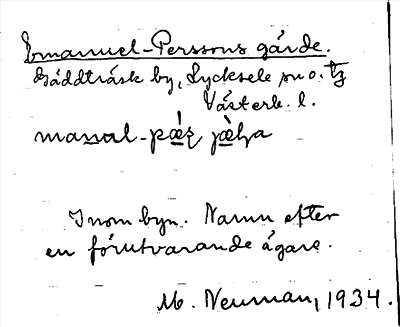 Emanuel-Perssons gärde.
Gäddträsk by, Lycksele sn o. tg
Västerb. l.
manal-pæ̀ʂ jæ̀ɭɽa
Inom byn. Namn efter
en förutvarande ägare.
M. Neuman, 1934.